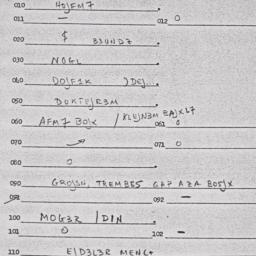 010 HOJFM7
011 — 012 0
020 $ B3UND7
030 NOGL
040 DOJF1K )DEJ
050 DOKTEJR3M
060 AFM7 BOJX / KLEJN3M BAJXL7
061 0
070 071 0
080 0
090 GROJSN, TREMBE5 GAP AZA BOSJX
091 092 —
100 MOG3R / DIN
101 0 102 —
110 EJD3L3R MENC+